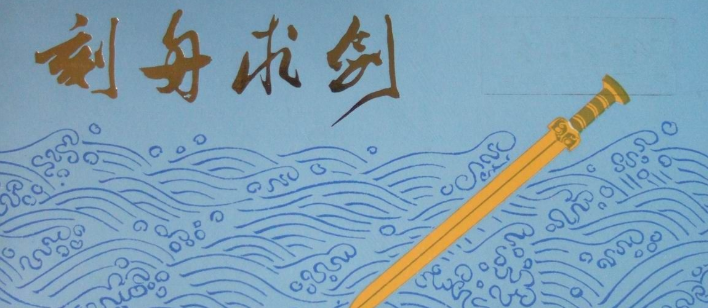 刻舟求剑